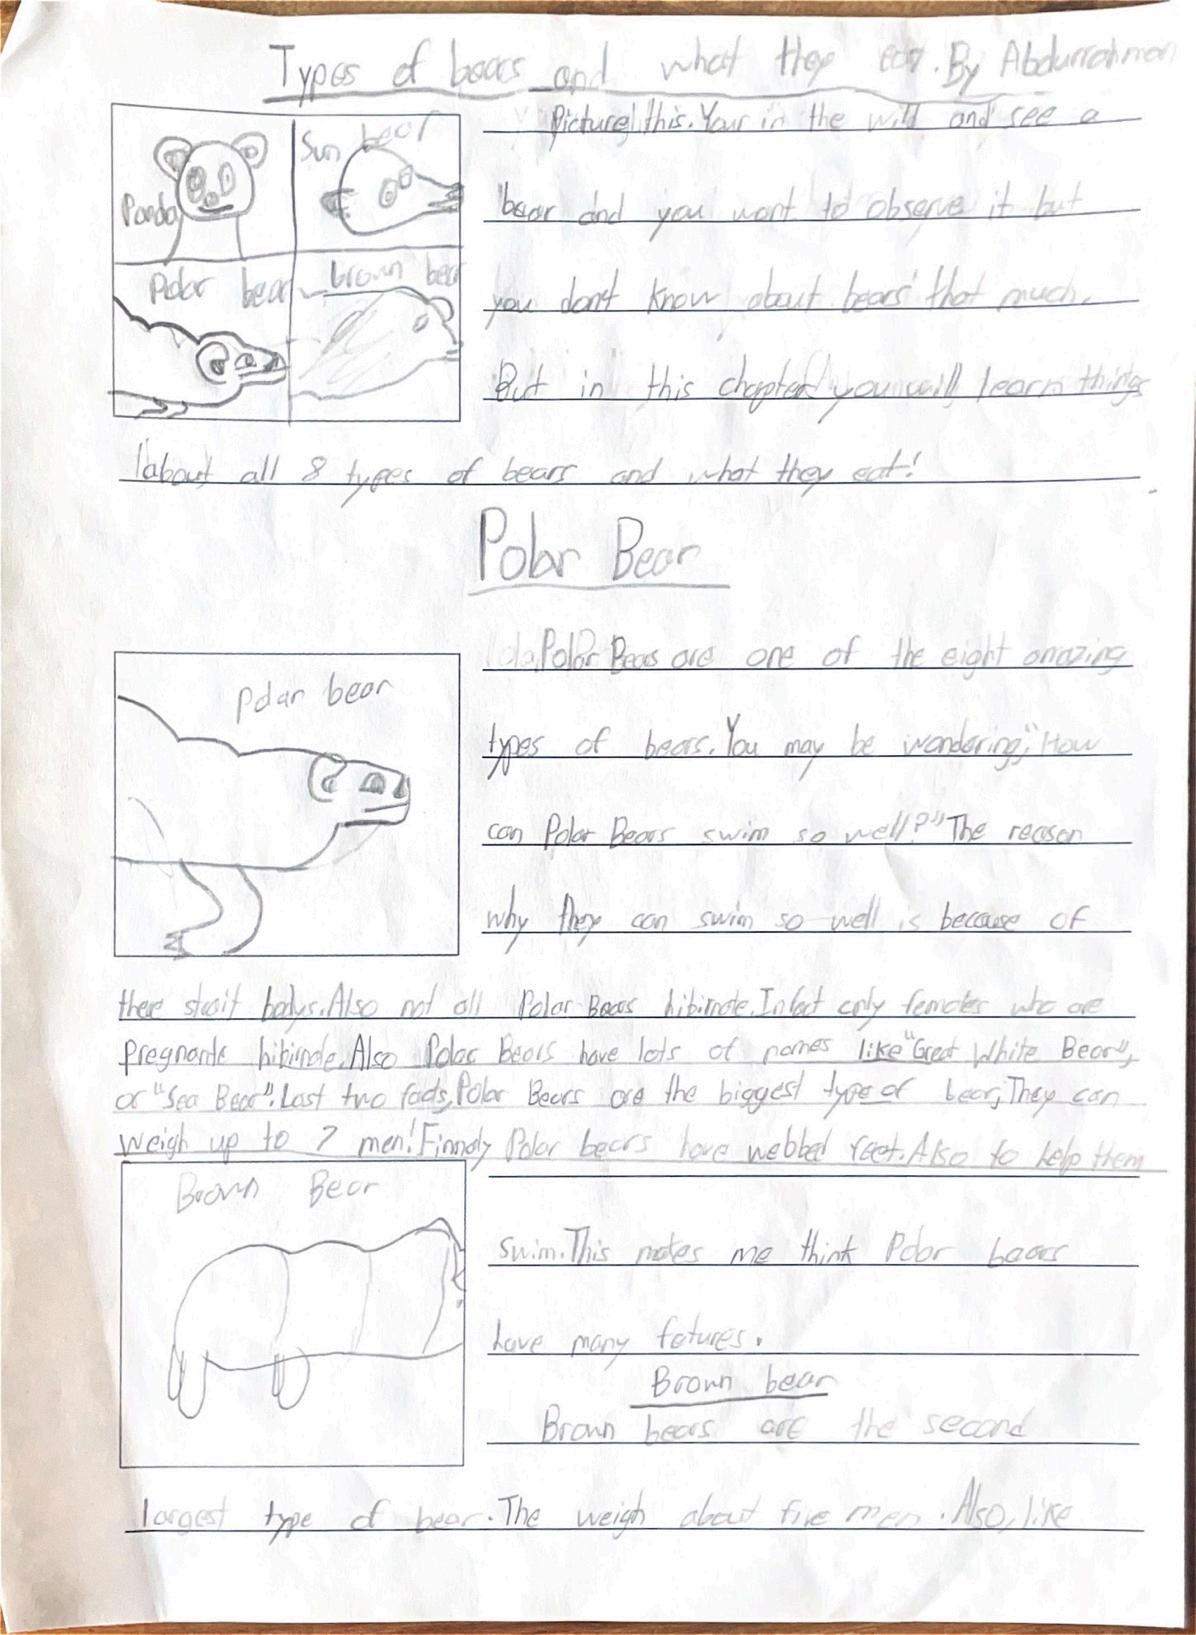 Types of bears and what they eat. By Abdurrahman
Panda
Sun bear
Polar bear
brown bear
Picture this. Your in the will and see a
bear and you want to observe it but
you don't know about bears that much.
But in this chapter you will learn things
about all 8 types of bears and what they eat!
Polar Bear
Polar bear
Polar Bears are one of the eight amazing
types of bears. You may be wondering, "How
can Polar Bears swim so well?" The reason
why they can swim so well is because of
there stait bodys. Also not all Polar Bears hibirnate. Infact only females who are
pregnante hibirnate. Also Polar Bears have lots of names like "Great White Bear",
or "Sea Bear". Last two facts, Polar Bears are the biggest type of bear, They can
weigh up to 7 men! Finnaly Polar bears have webbed feet. Also to help them
Brown Bear
swim. This makes me think Polar bears
have many fetures.
Brown bear
Brown bears are the second
largest type of bear. The weigh about five men. Also, like